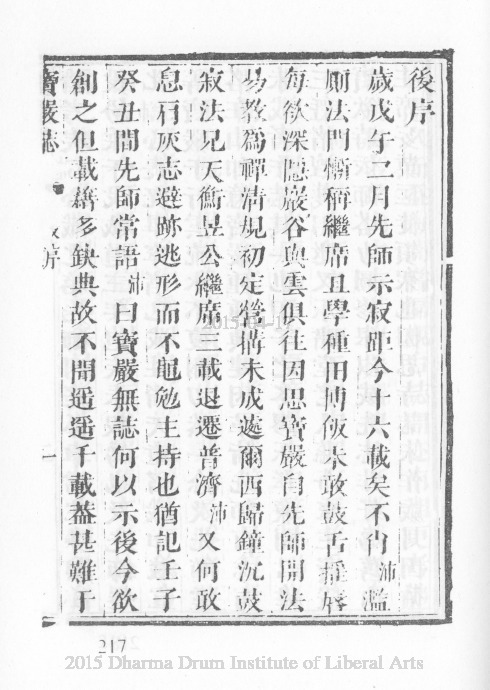 後序
歲戊午二月先師示寂距今十六載矣不肖沛濫
廁法門慚稱繼席且學種田博飯未敢鼓舌搖唇
每欲深隱巖谷與雲俱往因思寶嚴自先師開法
易教為禪清規初定營搆未成遽爾西歸鐘沉鼓
寂法兄天衡昱公繼席三載退遷普濟沛又何敢
息石灰志避跡逃形而不黽勉主持也猶記壬子
癸丑間先師常語沛曰寶嚴無誌何以示後今欲
創之但載籍多鈌典故不聞遥遥千載葢甚難于
寶嚴誌
序
一
217
2015-04-17
2015 Dharma Drum Institute of Liberal Arts